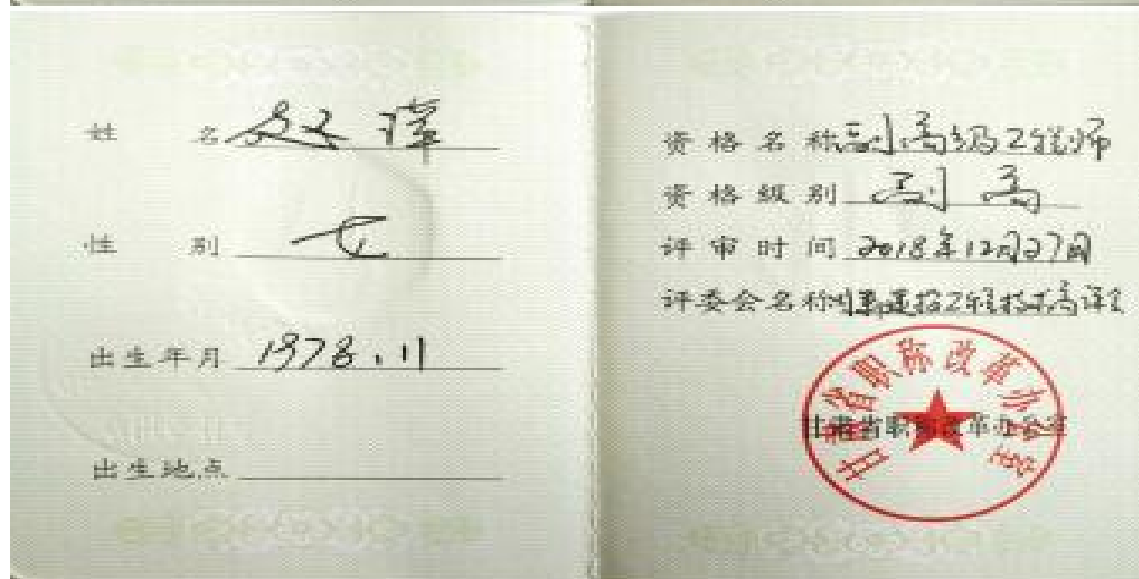 姓 名 赵 璋
性 别 女
出生年月 1978.11
出生地点
资格名称 副高级工程师
资格级别 副高
评审时间 2018年12月27日
评委会名称 工程技术高评会
甘肃省职称改革办公室
甘肃省职称改革办公室